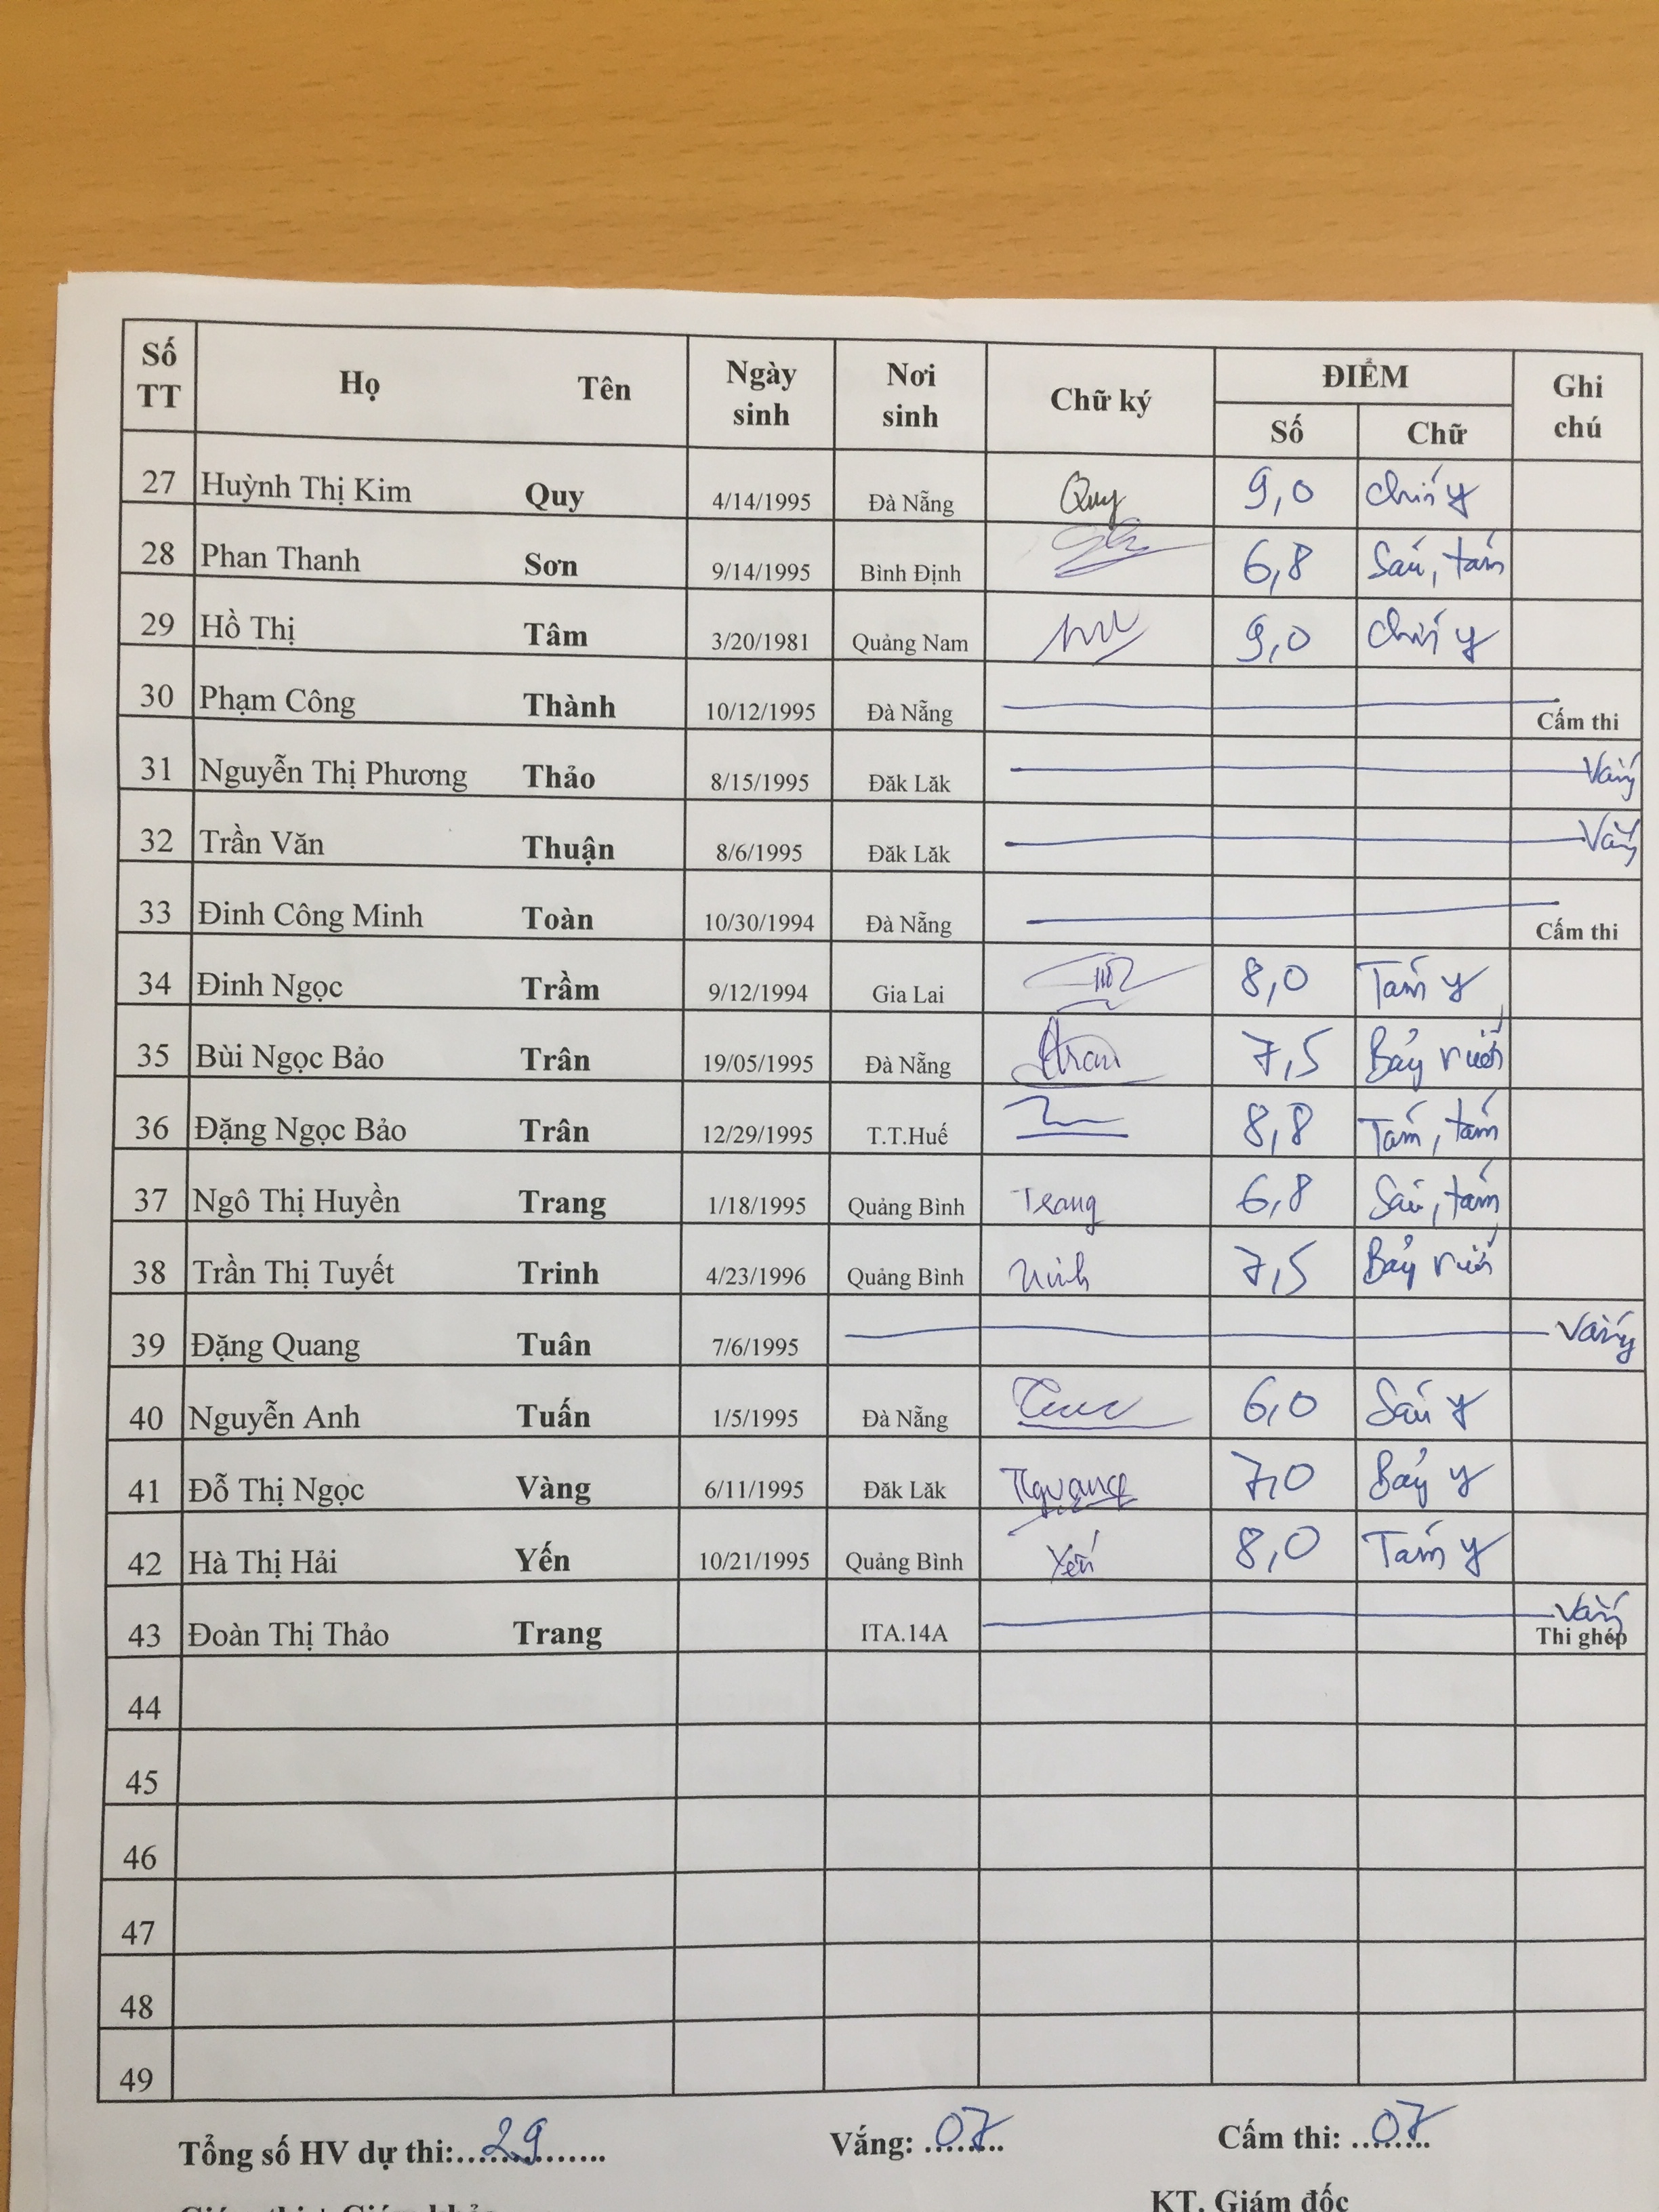 Số TT Họ Tên Ngày sinh Nơi sinh Chữ ký ĐIỂM Ghi chú
Số Chữ
27 Huỳnh Thị Kim Quy 4/14/1995 Đà Nẵng Quy 9,0 chín y
28 Phan Thanh Sơn 9/14/1995 Bình Định 6,8 Sáu, tám
29 Hồ Thị Tâm 3/20/1981 Quảng Nam 9,0 chín y
30 Phạm Công Thành 10/12/1995 Đà Nẵng Cấm thi
31 Nguyễn Thị Phương Thảo 8/15/1995 Đăk Lăk Vắng
32 Trần Văn Thuận 8/6/1995 Đăk Lăk Vắng
33 Đinh Công Minh Toàn 10/30/1994 Đà Nẵng Cấm thi
34 Đinh Ngọc Trầm 9/12/1994 Gia Lai 8,0 Tám y
35 Bùi Ngọc Bảo Trân 19/05/1995 Đà Nẵng 7,5 Bảy rưỡi
36 Đặng Ngọc Bảo Trân 12/29/1995 T.T.Huế 8,8 Tám, tám
37 Ngô Thị Huyền Trang 1/18/1995 Quảng Bình Trang 6,8 Sáu, tám
38 Trần Thị Tuyết Trinh 4/23/1996 Quảng Bình Trinh 7,5 Bảy rưỡi
39 Đặng Quang Tuân 7/6/1995 Vắng
40 Nguyễn Anh Tuấn 1/5/1995 Đà Nẵng 6,0 Sáu y
41 Đỗ Thị Ngọc Vàng 6/11/1995 Đăk Lăk 7,0 Bảy y
42 Hà Thị Hải Yến 10/21/1995 Quảng Bình Yến 8,0 Tám y
43 Đoàn Thị Thảo Trang ITA.14A Vắng Thi ghép
44
45
46
47
48
49
Tổng số HV dự thi: 29 Vắng: 07 Cấm thi: 07
KT. Giám đốc